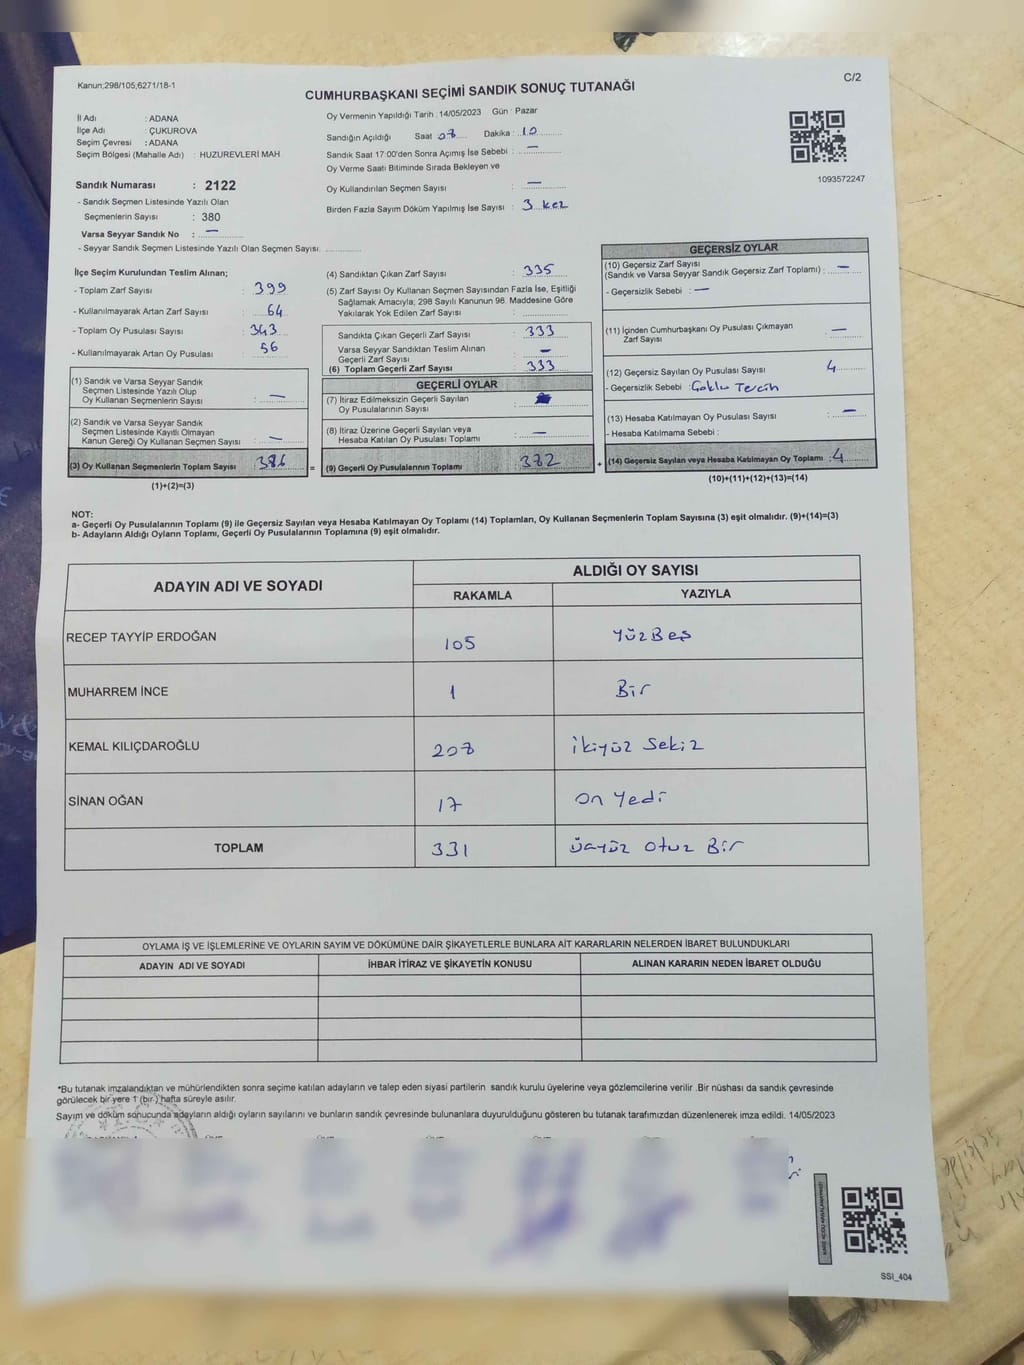 Kanun;298/105;6271/18-1
C/2
CUMHURBAŞKANI SEÇİMİ SANDIK SONUÇ TUTANAĞI
İl Adı : ADANA
İlçe Adı : ÇUKUROVA
Seçim Çevresi : ADANA
Seçim Bölgesi (Mahalle Adı) : HUZUREVLERİ MAH
Sandık Numarası : 2122
- Sandık Seçmen Listesinde Yazılı Olan
Seçmenlerin Sayısı : 380
Varsa Seyyar Sandık No : —
- Seyyar Sandık Seçmen Listesinde Yazılı Olan Seçmen Sayısı:
Oy Vermenin Yapıldığı Tarih : 14/05/2023 Gün : Pazar
Sandığın Açıldığı Saat Dakika : 10
Sandık Saat 17:00'den Sonra Açımış İse Sebebi : —
Oy Verme Saati Bitiminde Sırada Bekleyen ve
Oy Kullandırılan Seçmen Sayısı : —
Birden Fazla Sayım Döküm Yapılmış İse Sayısı : 3 kez
1093572247
İlçe Seçim Kurulundan Teslim Alınan;
- Toplam Zarf Sayısı : 399
- Kullanılmayarak Artan Zarf Sayısı : 64
- Toplam Oy Pusulası Sayısı : 343
- Kullanılmayarak Artan Oy Pusulası : 56
(1) Sandık ve Varsa Seyyar Sandık
Seçmen Listesinde Yazılı Olup
Oy Kullanan Seçmenlerin Sayısı : —
(2) Sandık ve Varsa Seyyar Sandık
Seçmen Listesinde Kayıtlı Olmayan
Kanun Gereği Oy Kullanan Seçmen Sayısı : —
(3) Oy Kullanan Seçmenlerin Toplam Sayısı
(1)+(2)=(3)
(4) Sandıktan Çıkan Zarf Sayısı : 335
(5) Zarf Sayısı Oy Kullanan Seçmen Sayısından Fazla İse, Eşitliği
Sağlamak Amacıyla; 298 Sayılı Kanunun 98. Maddesine Göre
Yakılarak Yok Edilen Zarf Sayısı :
Sandıkta Çıkan Geçerli Zarf Sayısı : 333
Varsa Seyyar Sandıktan Teslim Alınan
Geçerli Zarf Sayısı : —
(6) Toplam Geçerli Zarf Sayısı : 333
GEÇERLİ OYLAR
(7) İtiraz Edilmeksizin Geçerli Sayılan
Oy Pusulalarının Sayısı :
(8) İtiraz Üzerine Geçerli Sayılan veya
Hesaba Katılan Oy Pusulası Toplamı : —
= (9) Geçerli Oy Pusulalarının Toplamı
GEÇERSİZ OYLAR
(10) Geçersiz Zarf Sayısı
(Sandık ve Varsa Seyyar Sandık Geçersiz Zarf Toplamı) : —
- Geçersizlik Sebebi : —
(11) İçinden Cumhurbaşkanı Oy Pusulası Çıkmayan
Zarf Sayısı : —
(12) Geçersiz Sayılan Oy Pusulası Sayısı : 4
- Geçersizlik Sebebi : Çoklu Tercih
(13) Hesaba Katılmayan Oy Pusulası Sayısı : —
- Hesaba Katılmama Sebebi :
+ (14) Geçersiz Sayılan veya Hesaba Katılmayan Oy Toplamı : 4
(10)+(11)+(12)+(13)=(14)
NOT:
a- Geçerli Oy Pusulalarının Toplamı (9) ile Geçersiz Sayılan veya Hesaba Katılmayan Oy Toplamı (14) Toplamları, Oy Kullanan Seçmenlerin Toplam Sayısına (3) eşit olmalıdır. (9)+(14)=(3)
b- Adayların Aldığı Oyların Toplamı, Geçerli Oy Pusulalarının Toplamına (9) eşit olmalıdır.
ADAYIN ADI VE SOYADI
ALDIĞI OY SAYISI
RAKAMLA YAZIYLA
RECEP TAYYİP ERDOĞAN 105 YüzBeş
MUHARREM İNCE 1 Bir
KEMAL KILIÇDAROĞLU 208 ikiyüz sekiz
SİNAN OĞAN 17 on yedi
TOPLAM 331 üçyüz otuz Bir
OYLAMA İŞ VE İŞLEMLERİNE VE OYLARIN SAYIM VE DÖKÜMÜNE DAİR ŞİKAYETLERLE BUNLARA AİT KARARLARIN NELERDEN İBARET BULUNDUKLARI
ADAYIN ADI VE SOYADI İHBAR İTİRAZ VE ŞİKAYETİN KONUSU ALINAN KARARIN NEDEN İBARET OLDUĞU
*Bu tutanak imzalandıktan ve mühürlendikten sonra seçime katılan adayların ve talep eden siyasi partilerin sandık kurulu üyelerine veya gözlemcilerine verilir .Bir nüshası da sandık çevresinde
görülecek bir yere 1 (bir ) hafta süreyle asılır.
Sayım ve döküm sonucunda adayların aldığı oyların sayılarını ve bunların sandık çevresinde bulunanlara duyurulduğunu gösteren bu tutanak tarafımızdan düzenlenerek imza edildi. 14/05/2023
SSI_404